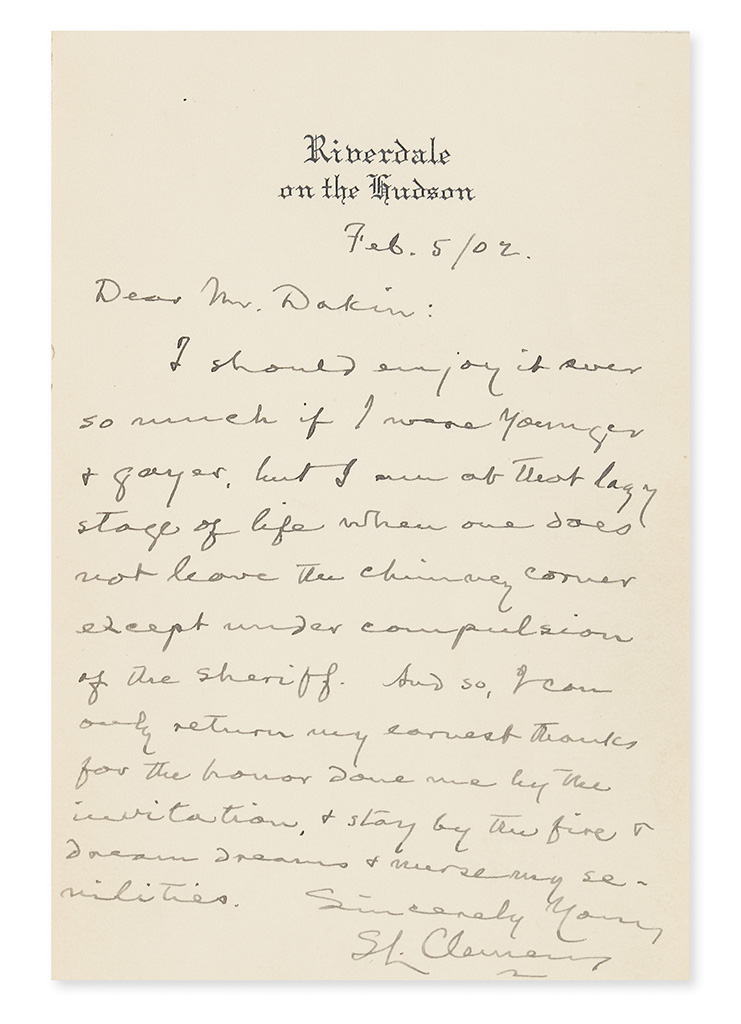 Riverdale
on the Hudson
Feb. 5/02.
Dear Mr. Dakin:
I should enjoy it ever
so much if I were younger
& gayer, but I am at that lazy
stage of life when one does
not leave the chimney corner
except under compulsion
of the sheriff. And so, I can
only return my earnest thanks
for the honor done me by the
invitation, & stay by the fire &
dream dreams & nurse my se-
nilities. Sincerely Yours,
SL. Clemens